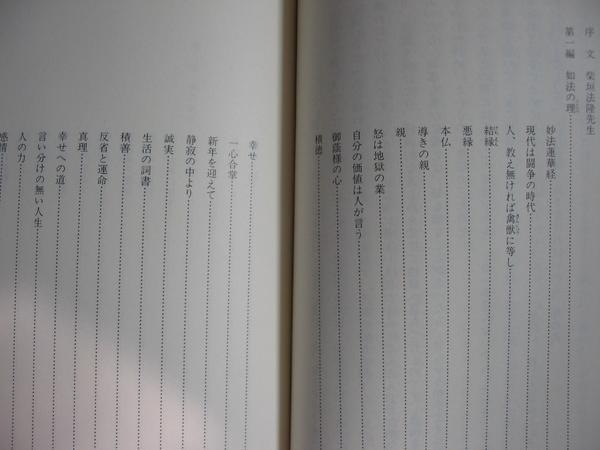 序文 柴垣法隆先生
第一編 如法の理
妙法蓮華経
現代は闘争の時代
人、教え無ければ禽獣に等し
結縁
悪縁
本仏
導きの親
親
怒は地獄の業
自分の価値は人が言う
御蔭様の心
積徳
幸せ
一心合掌
新年を迎えて
静寂の中より
誠実
生活の詞書
積善
反省と運命
真理
幸せへの道
言い分けの無い人生
人の力
感情